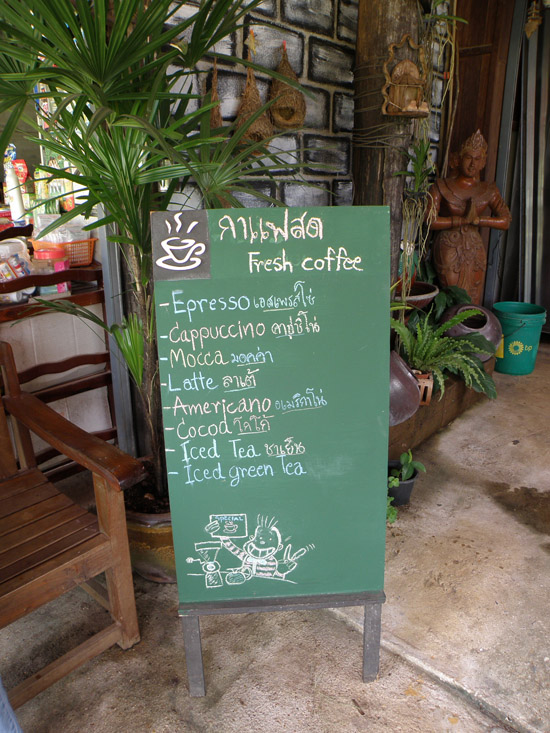 กาแฟสด
Fresh coffee
- Epresso เอสเพรสโซ่
- Cappuccino คาปูชิโน่
- Mocca มอคค่า
- Latte ลาเต้
- Americano อเมริกาโน่
- Cocod โกโก้
- Iced Tea ชาเย็น
- Iced green tea
SPECIAL
bp